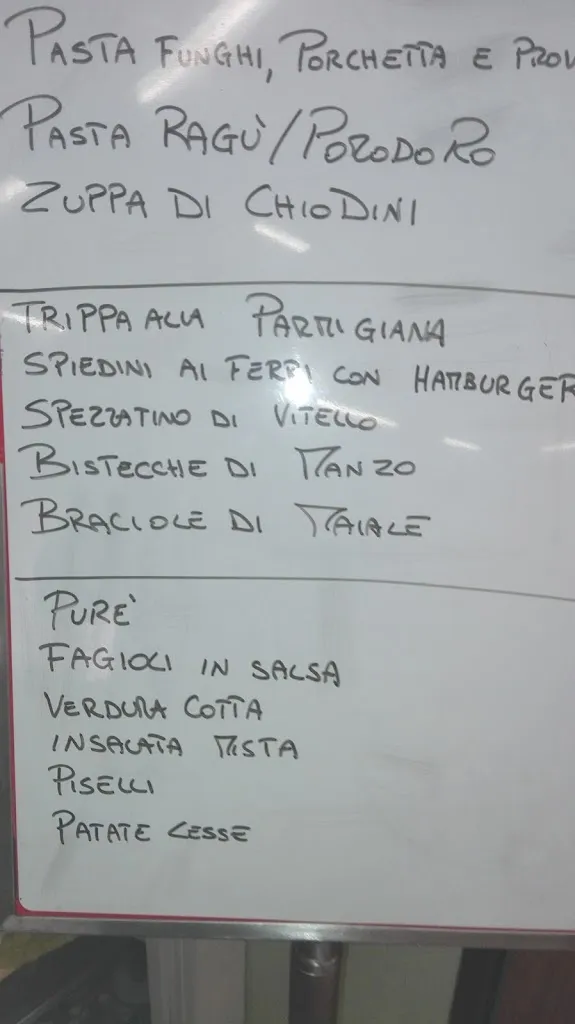 PASTA FUNGHI, PORCHETTA E PROV
PASTA RAGÙ/POMODORO
ZUPPA DI CHIODINI
TRIPPA ALLA PARMIGIANA
SPIEDINI AI FERRI CON HAMBURGER
SPEZZATINO DI VITELLO
BISTECCHE DI MANZO
BRACIOLE DI MAIALE
PURE'
FAGIOLI IN SALSA
VERDURA COTTA
INSALATA MISTA
PISELLI
PATATE LESSE